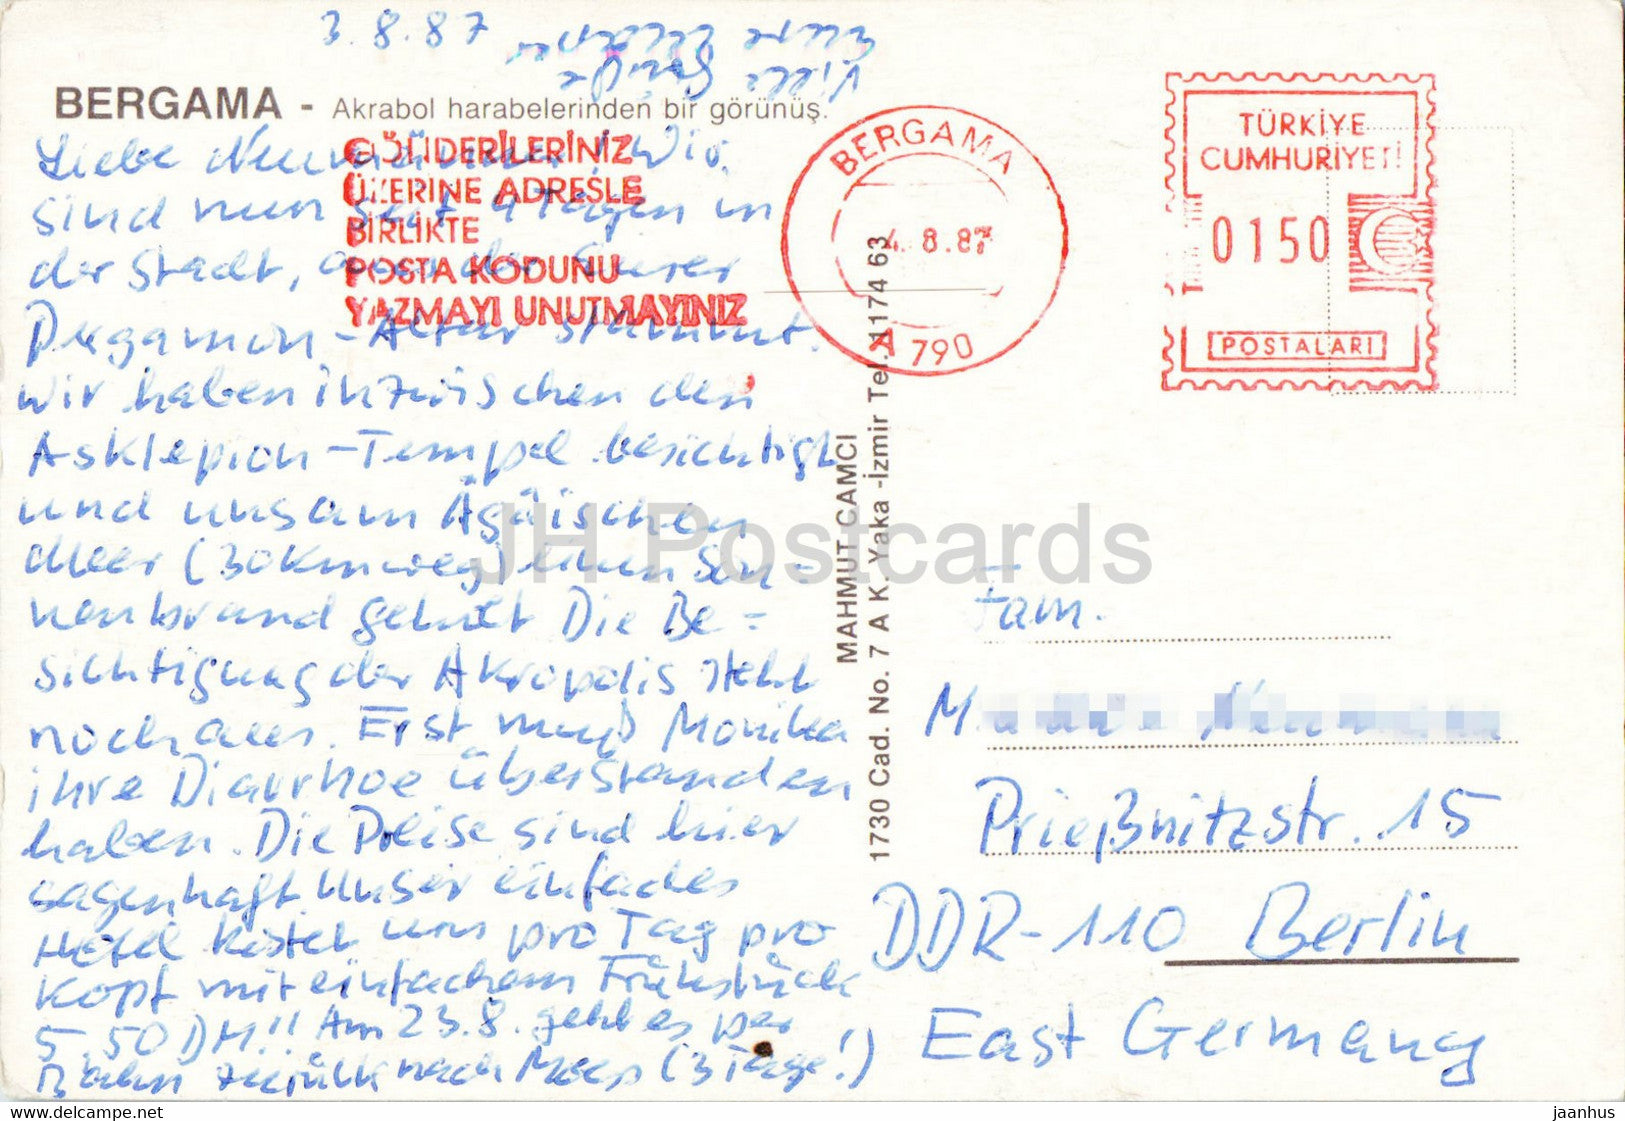 3.8.87
Viele Grüße
BERGAMA - Akrabol harabelerinden bir görünüş.
GÖNDERİLERİNİZ
ÜZERINE ADRESLE
BİRLİKTE
POSTA KODUNU
YAZMAYI UNUTMAYINIZ
BERGAMA
4.8.87
A 790
TÜRKİYE
CUMHURİYETİ
0150
POSTALARI
Liebe Neumänner! Wir
sind nun seit 4 Tagen in
der Stadt, aus der Euer
Pergamon-Altar stammt.
Wir haben inzwischen den
Asklepion-Tempel besichtigt
und uns am Ägäischen
Meer (30km weg) einen Son=
nenbrand geholt. Die Be=
sichtigung der Akropolis steht
noch aus. Erst muß Monika
ihre Diarrhoe überstanden
haben. Die Preise sind hier
sagenhaft. Unser einfaches
Hotel kostet uns pro Tag pro
Kopf mit einfachem Frühstück
5-50 DM!! Am 23.8. geht es per
Bahn zurück nach Moers (3 Tage!)
MAHMUT CAMCI
1730 Cad. No. 7 A K. Yaka -İzmir Tel. 11 174 63
Fam.
Prießnitzstr. 15
DDR-110 Berlin
East Germany
JH Postcards
© delcampe.net
jaanhus